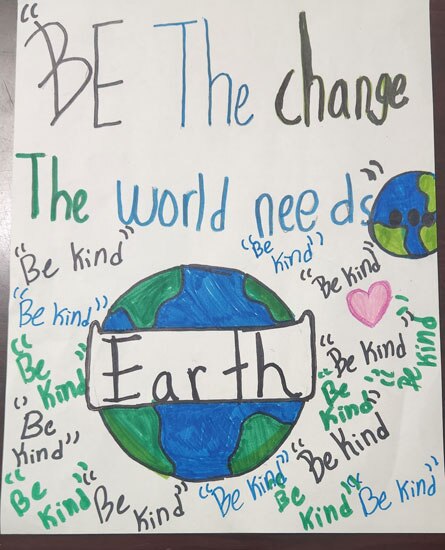 "BE The change
The world needs"
"Be Kind"
"Be
Kind"
"Be Kind"
"Be Kind"
Earth
"Be
Kind"
"Be Kind"
"Be Kind"
"Be
Kind"
"Be
Kind"
"Be Kind"
"Be
Kind"
"Be
Kind"
"Be Kind"
"Be
Kind"
"Be Kind"